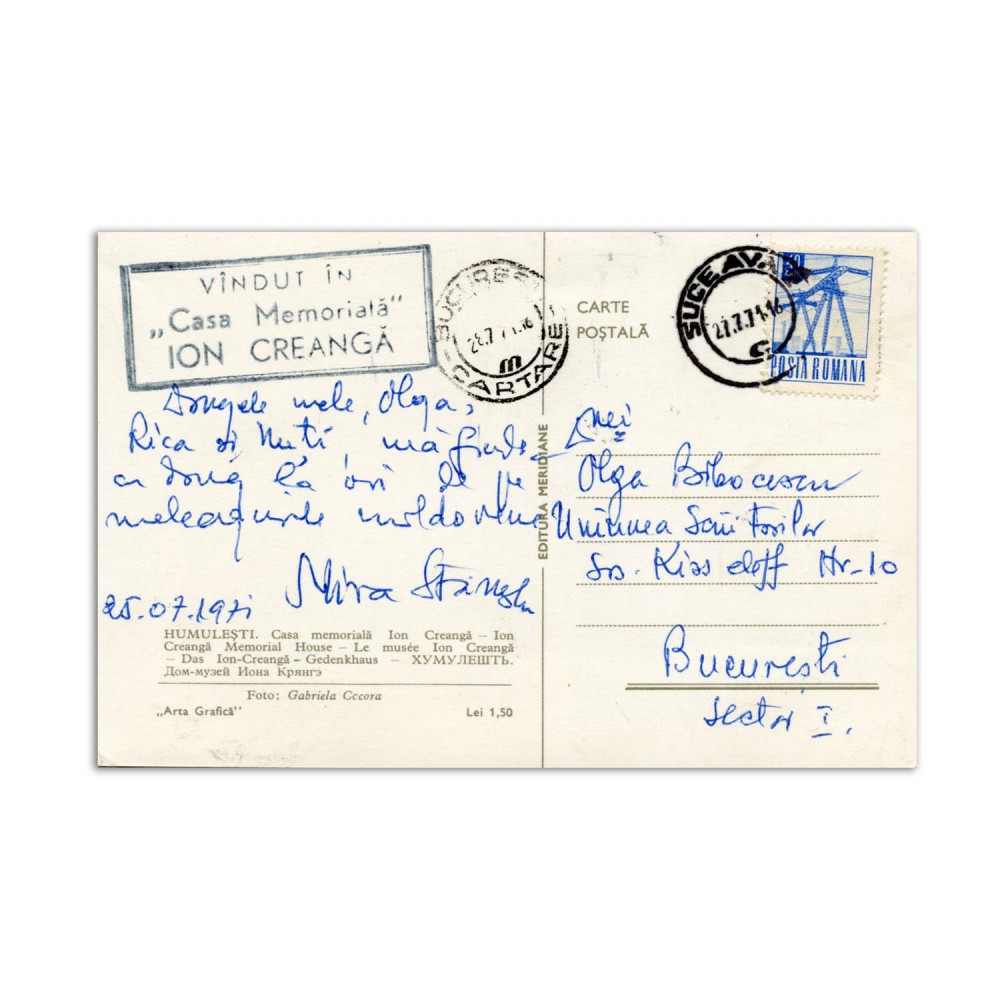 VÎNDUT ÎN
„Casa Memorială"
ION CREANGĂ
BUCUREȘTI
28.7.71.16
CARTARE
CARTE
POȘTALĂ
SUCEAVA
27.7.71.16
POSTA ROMANA
Dragele mele, Olga,
Rica și Nuți, mă gîndesc
a doua la voi de pe
meleagurile moldovene
Mira
25.07.1971
HUMULEȘTI. Casa memorială Ion Creangă – Ion
Creangă Memorial House – Le musée Ion Creangă
– Das Ion-Creangă – Gedenkhaus – ХУМУЛЕШТЬ.
Дом-музей Иона Крянгэ
Foto: Gabriela Cocora
„Arta Grafică"
Lei 1,50
EDITURA MERIDIANE
Olga
Uniunea Scriitorilor
Șos. Kisseleff Nr-10
București
Sector I.